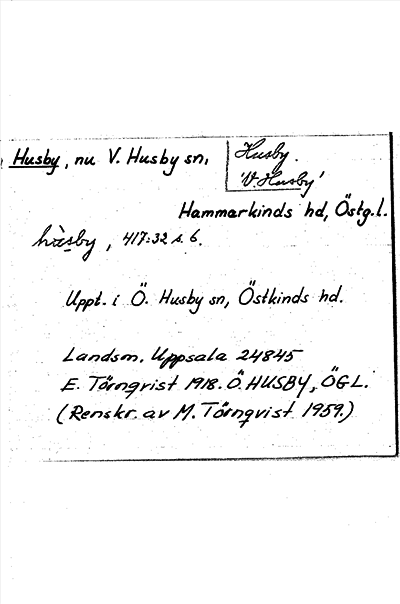 Husby, nu V. Husby sn,
Husby.
'V. Husby'
Hammarkinds hd, Östg.l.
hùsby, 417:32 s. 6.
Uppt. i Ö. Husby sn, Östkinds hd.
Landsm. Uppsala 24845
E. Törnqvist 1918. Ö. HUSBY, ÖGL.
(Renskr. av M. Törnqvist 1959.)